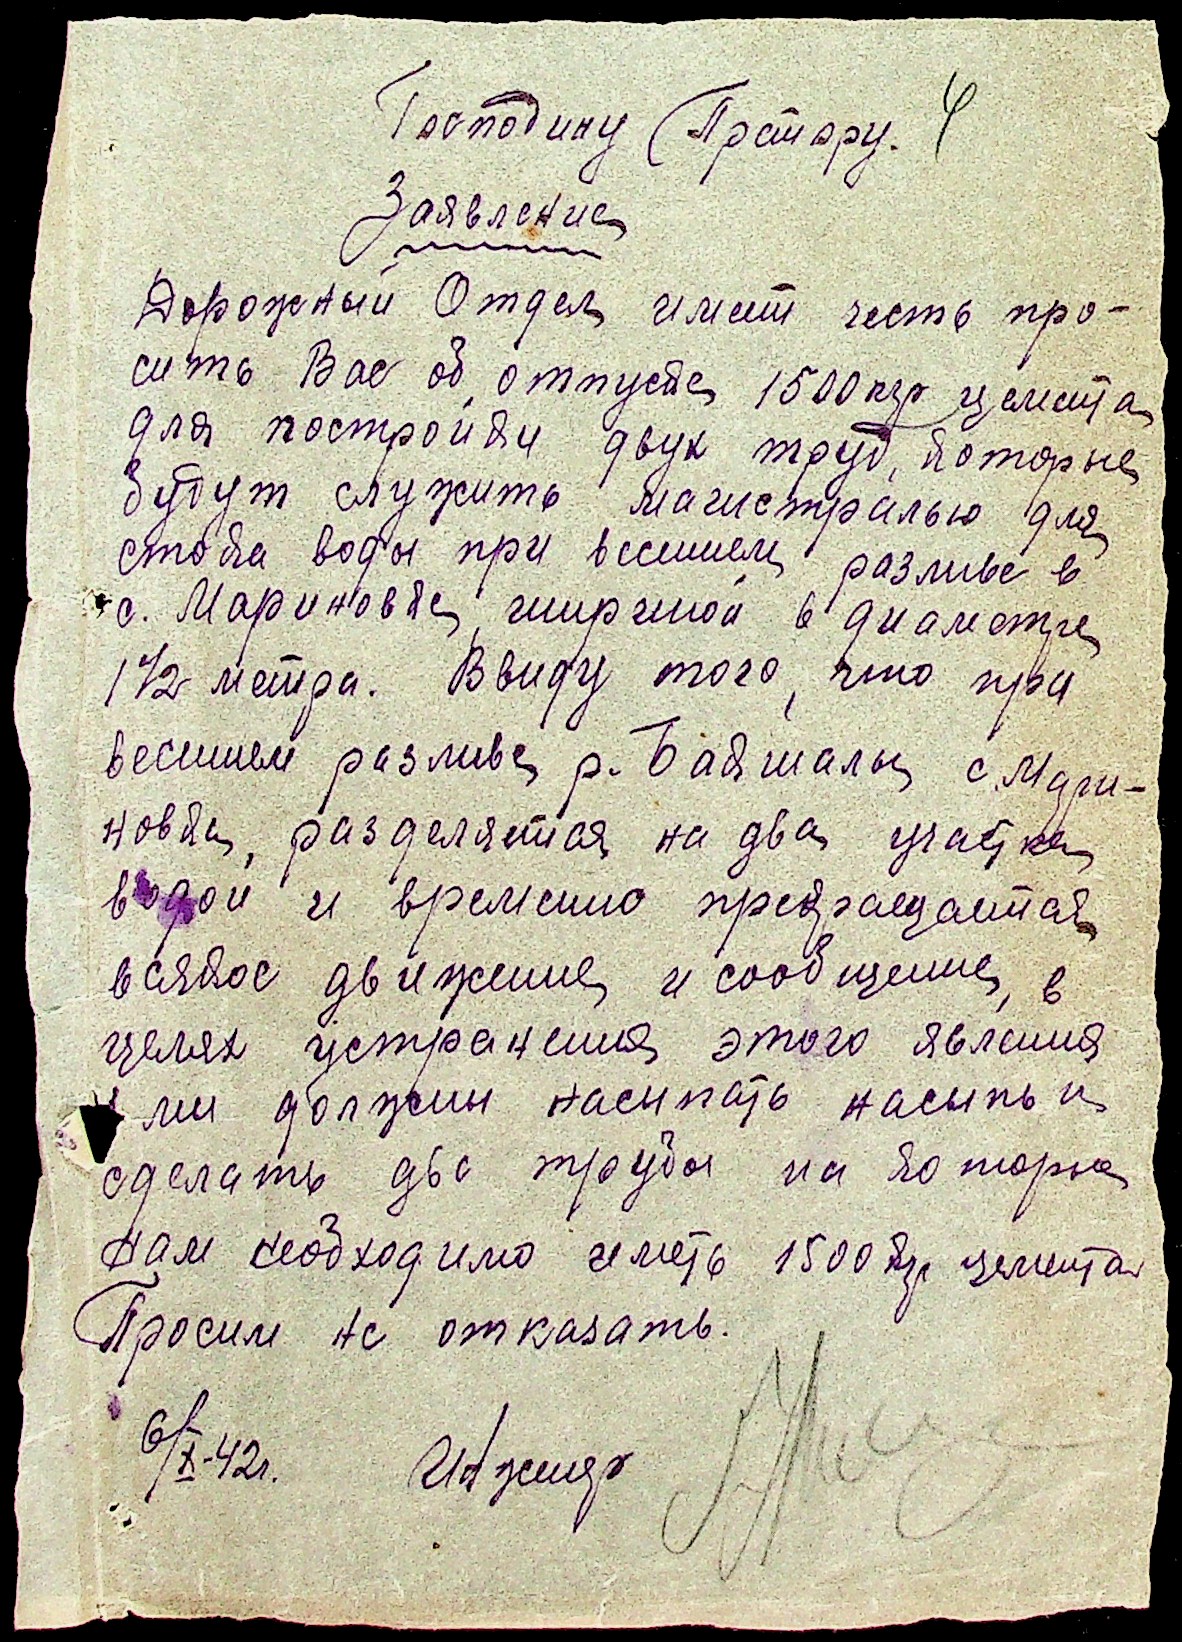 Господину Претору. 4
Заявление
Дорожный Отдел имеет честь про-
сить Вас об отпуске 1500 кгр цемента
для постройки двух труб, которые
будут служить магистралью для
стока воды при весеннем разливе в
с. Мариновке, шириной в диаметре
1 1/2 метра. Ввиду того, что при
весеннем разливе р. Бакшалы с. Мари-
новка, разделяется на два участка
водой и временно прекращается
всякое движение и сообщение, в
целях устранения этого явления
ми должны насыпать насыпь и
сделать две трубы на которые
нам необходимо иметь 1500 кгр цемента
Просим не отказать.
6/X-42г. Инженер